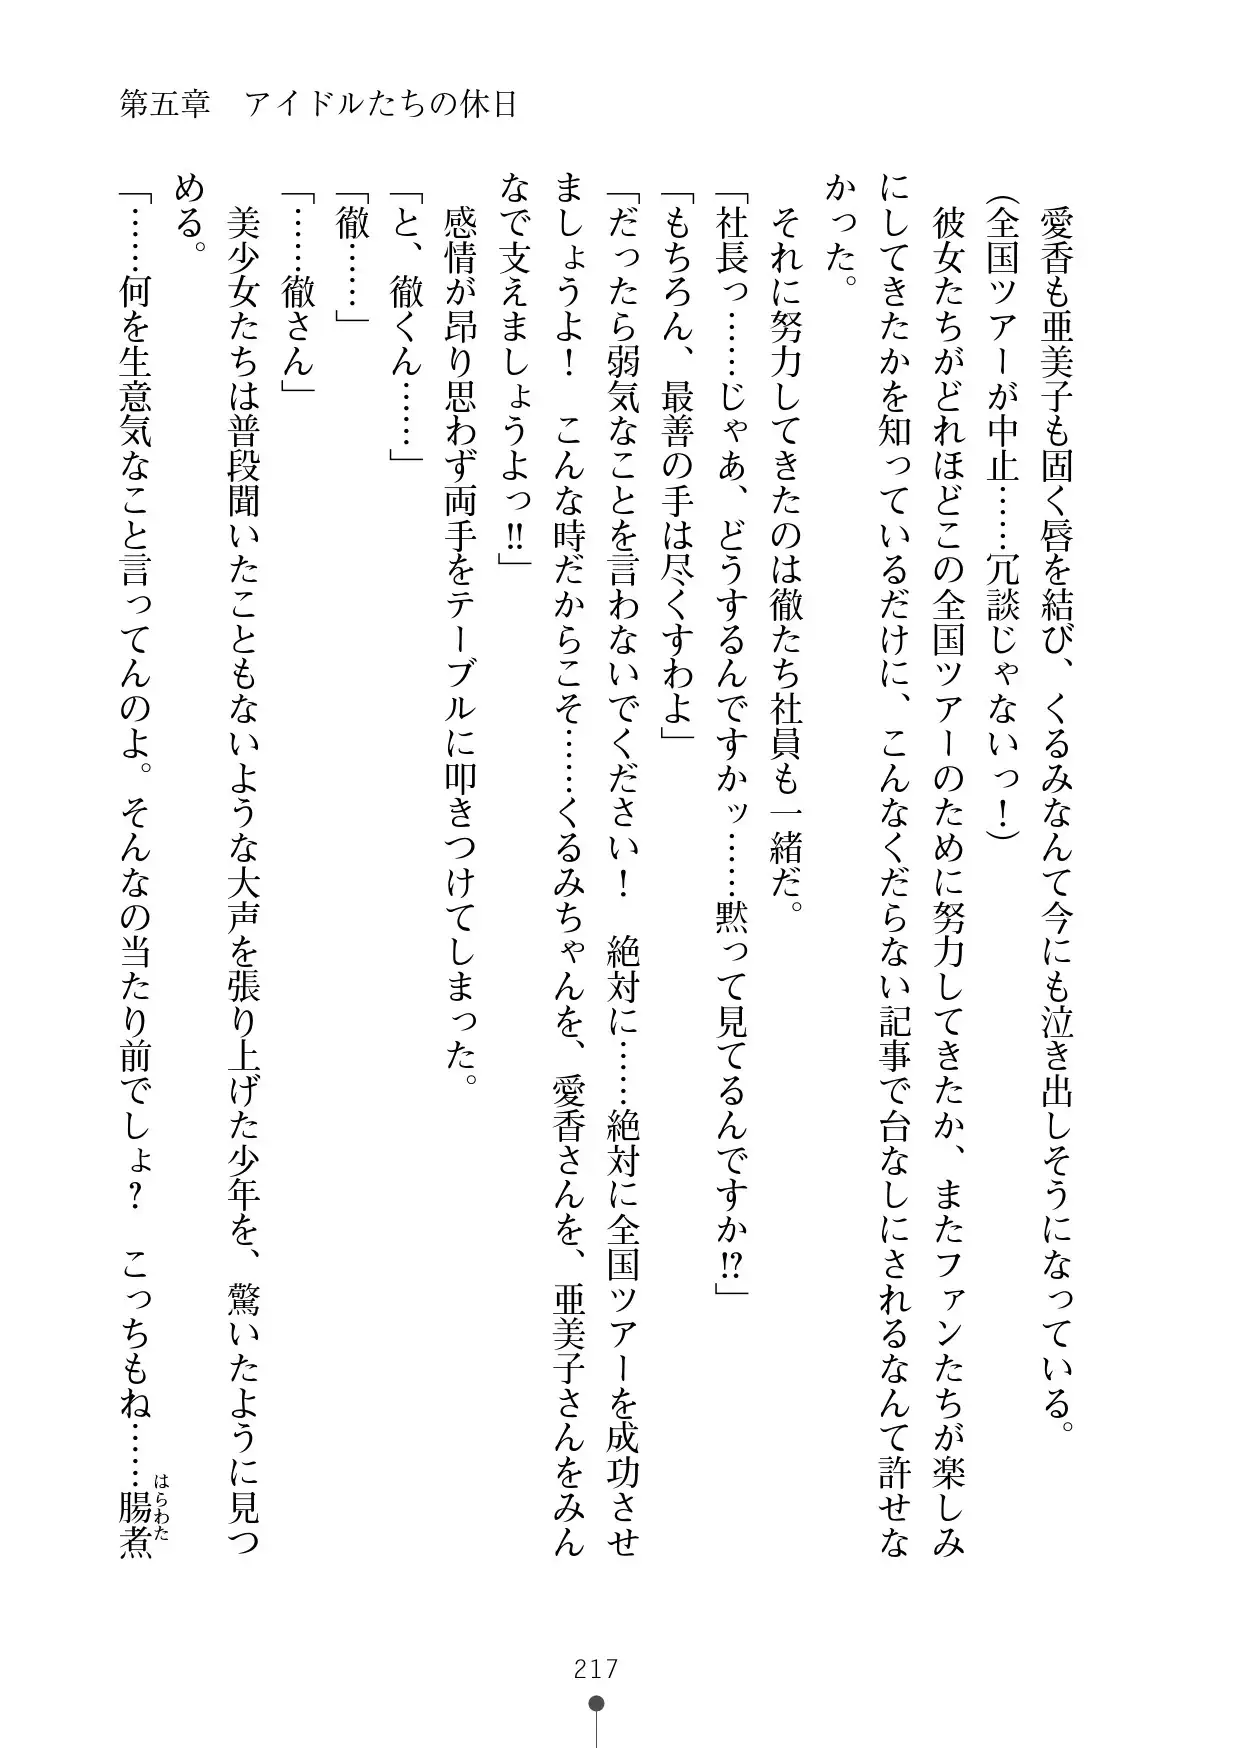 第五章　アイドルたちの休日
愛香も亜美子も固く唇を結び、くるみなんて今にも泣き出しそうになっている。
（全国ツアーが中止……冗談じゃないっ！）
彼女たちがどれほどこの全国ツアーのために努力してきたか、またファンたちが楽しみ
にしてきたかを知っているだけに、こんなくだらない記事で台なしにされるなんて許せな
かった。
それに努力してきたのは徹たち社員も一緒だ。
「社長っ……じゃあ、どうするんですかッ……黙って見てるんですか⁉」
「もちろん、最善の手は尽くすわよ」
「だったら弱気なことを言わないでください！　絶対に……絶対に全国ツアーを成功させ
ましょうよ！　こんな時だからこそ……くるみちゃんを、愛香さんを、亜美子さんをみん
なで支えましょうよっ‼」
感情が昂り思わず両手をテーブルに叩きつけてしまった。
「と、徹くん……」
「徹……」
「……徹さん」
美少女たちは普段聞いたこともないような大声を張り上げた少年を、驚いたように見つ
める。
「……何を生意気なこと言ってんのよ。そんなの当たり前でしょ？　こっちもね……腸煮
はらわた
217